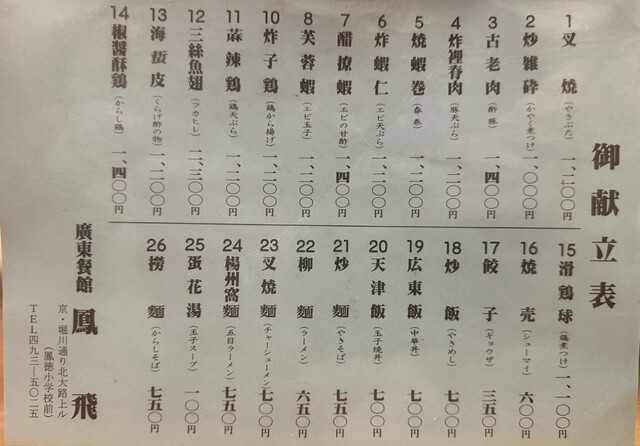 御献立表
1 叉焼 (やきぶた) 一、二〇〇円
2 炒雑砕 (かやく煮つけ) 一、〇〇〇円
3 古老肉 (酢豚) 一、四〇〇円
4 炸裡脊肉 (豚天ぷら) 一、二〇〇円
5 焼蝦巻 (春巻) 一、二〇〇円
6 炸蝦仁 (エビ天ぷら) 一、二〇〇円
7 醋撩蝦 (エビの甘酢) 一、四〇〇円
8 芙蓉蝦 (エビ玉子) 一、二〇〇円
10 炸子鶏 (鶏から揚げ) 一、二〇〇円
11 蔴辣鶏 (鶏天ぷら) 一、二〇〇円
12 三絲魚翅 (フカヒレ) 二、三〇〇円
13 海蜇皮 (くらげ酢の物) 一、二〇〇円
14 椒醤酥鶏 (からし鶏) 一、四〇〇円
15 滑鶏球 (鶏煮つけ) 一、一〇〇円
16 焼売 (シューマイ) 六〇〇円
17 餃子 (ギョウザ) 三五〇円
18 炒飯 (やきめし) 七〇〇円
19 広東飯 (中華丼) 七〇〇円
20 天津飯 (玉子焼丼) 七〇〇円
21 炒麺 (やきそば) 七五〇円
22 柳麺 (ラーメン) 六五〇円
23 叉焼麺 (チャーシューメン) 七〇〇円
24 楊州窩麺 (五目ラーメン) 七五〇円
25 蛋花湯 (玉子スープ) 一〇〇円
26 撈麺 (からしそば) 七五〇円
廣東餐館 鳳飛
京・堀川通り北大路上ル
(鳳徳小学校前)
TEL四九三―五〇二五